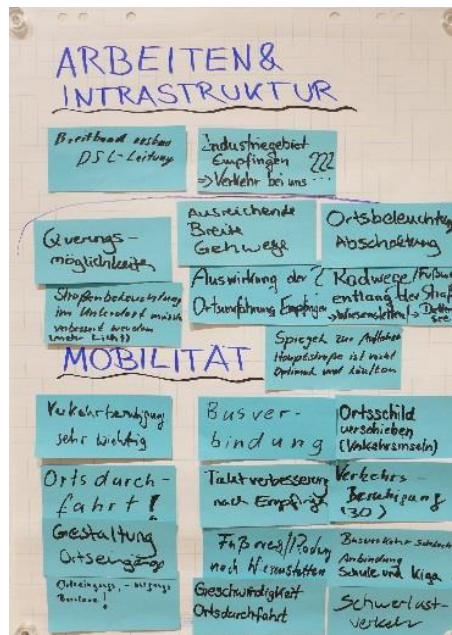 ARBEITEN &
INTRASTRUKTUR
Breitband ausbau
DSL-Leitung
Industriegebiet
Empfingen ???
=> Verkehr bei uns ...
Querungs-
möglichkeiten
Ausreichende
Breite
Gehwege
Ortsbeleuchtung
Abschaltung
Straßenbeleuchtung
im Unterdorf müsste
verbessert werden
(mehr Licht)
Auswirkung der ?
Ortsumfahrung Empfingen
Radwege/
entlang der
MOBILITÄT
Spiegel zur
Hauptstraße ist nicht
Optimal und
Verkehrberuhigung
sehr wichtig
Busver-
bindung
Ortsschild
verschieben
(Verkehrsinseln)
Ortsdurch-
fahrt!
Taktverbesserung
nach Empfing
Verkehrs-
Beruhigung
(30)
Gestaltung
Ortseingäng
Fußweg/
nach
Busverkehr
Anbindung
Schule und Kiga
Ortseingangs, -ausgangs
Geschwindigkeit
Ortsdurchfahrt
Schwerlast-
verkehr